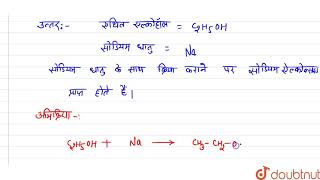 उत्तर:- एथिल एल्कोहॉल = C₂H₅OH
सोडियम धातु = Na
सोडियम धातु के साथ क्रिया कराने पर सोडियम ऐल्कोक्साइड
प्राप्त होते हैं।
अभिक्रिया:-
C₂H₅OH + Na → CH₃-CH₂-O
doubtnut